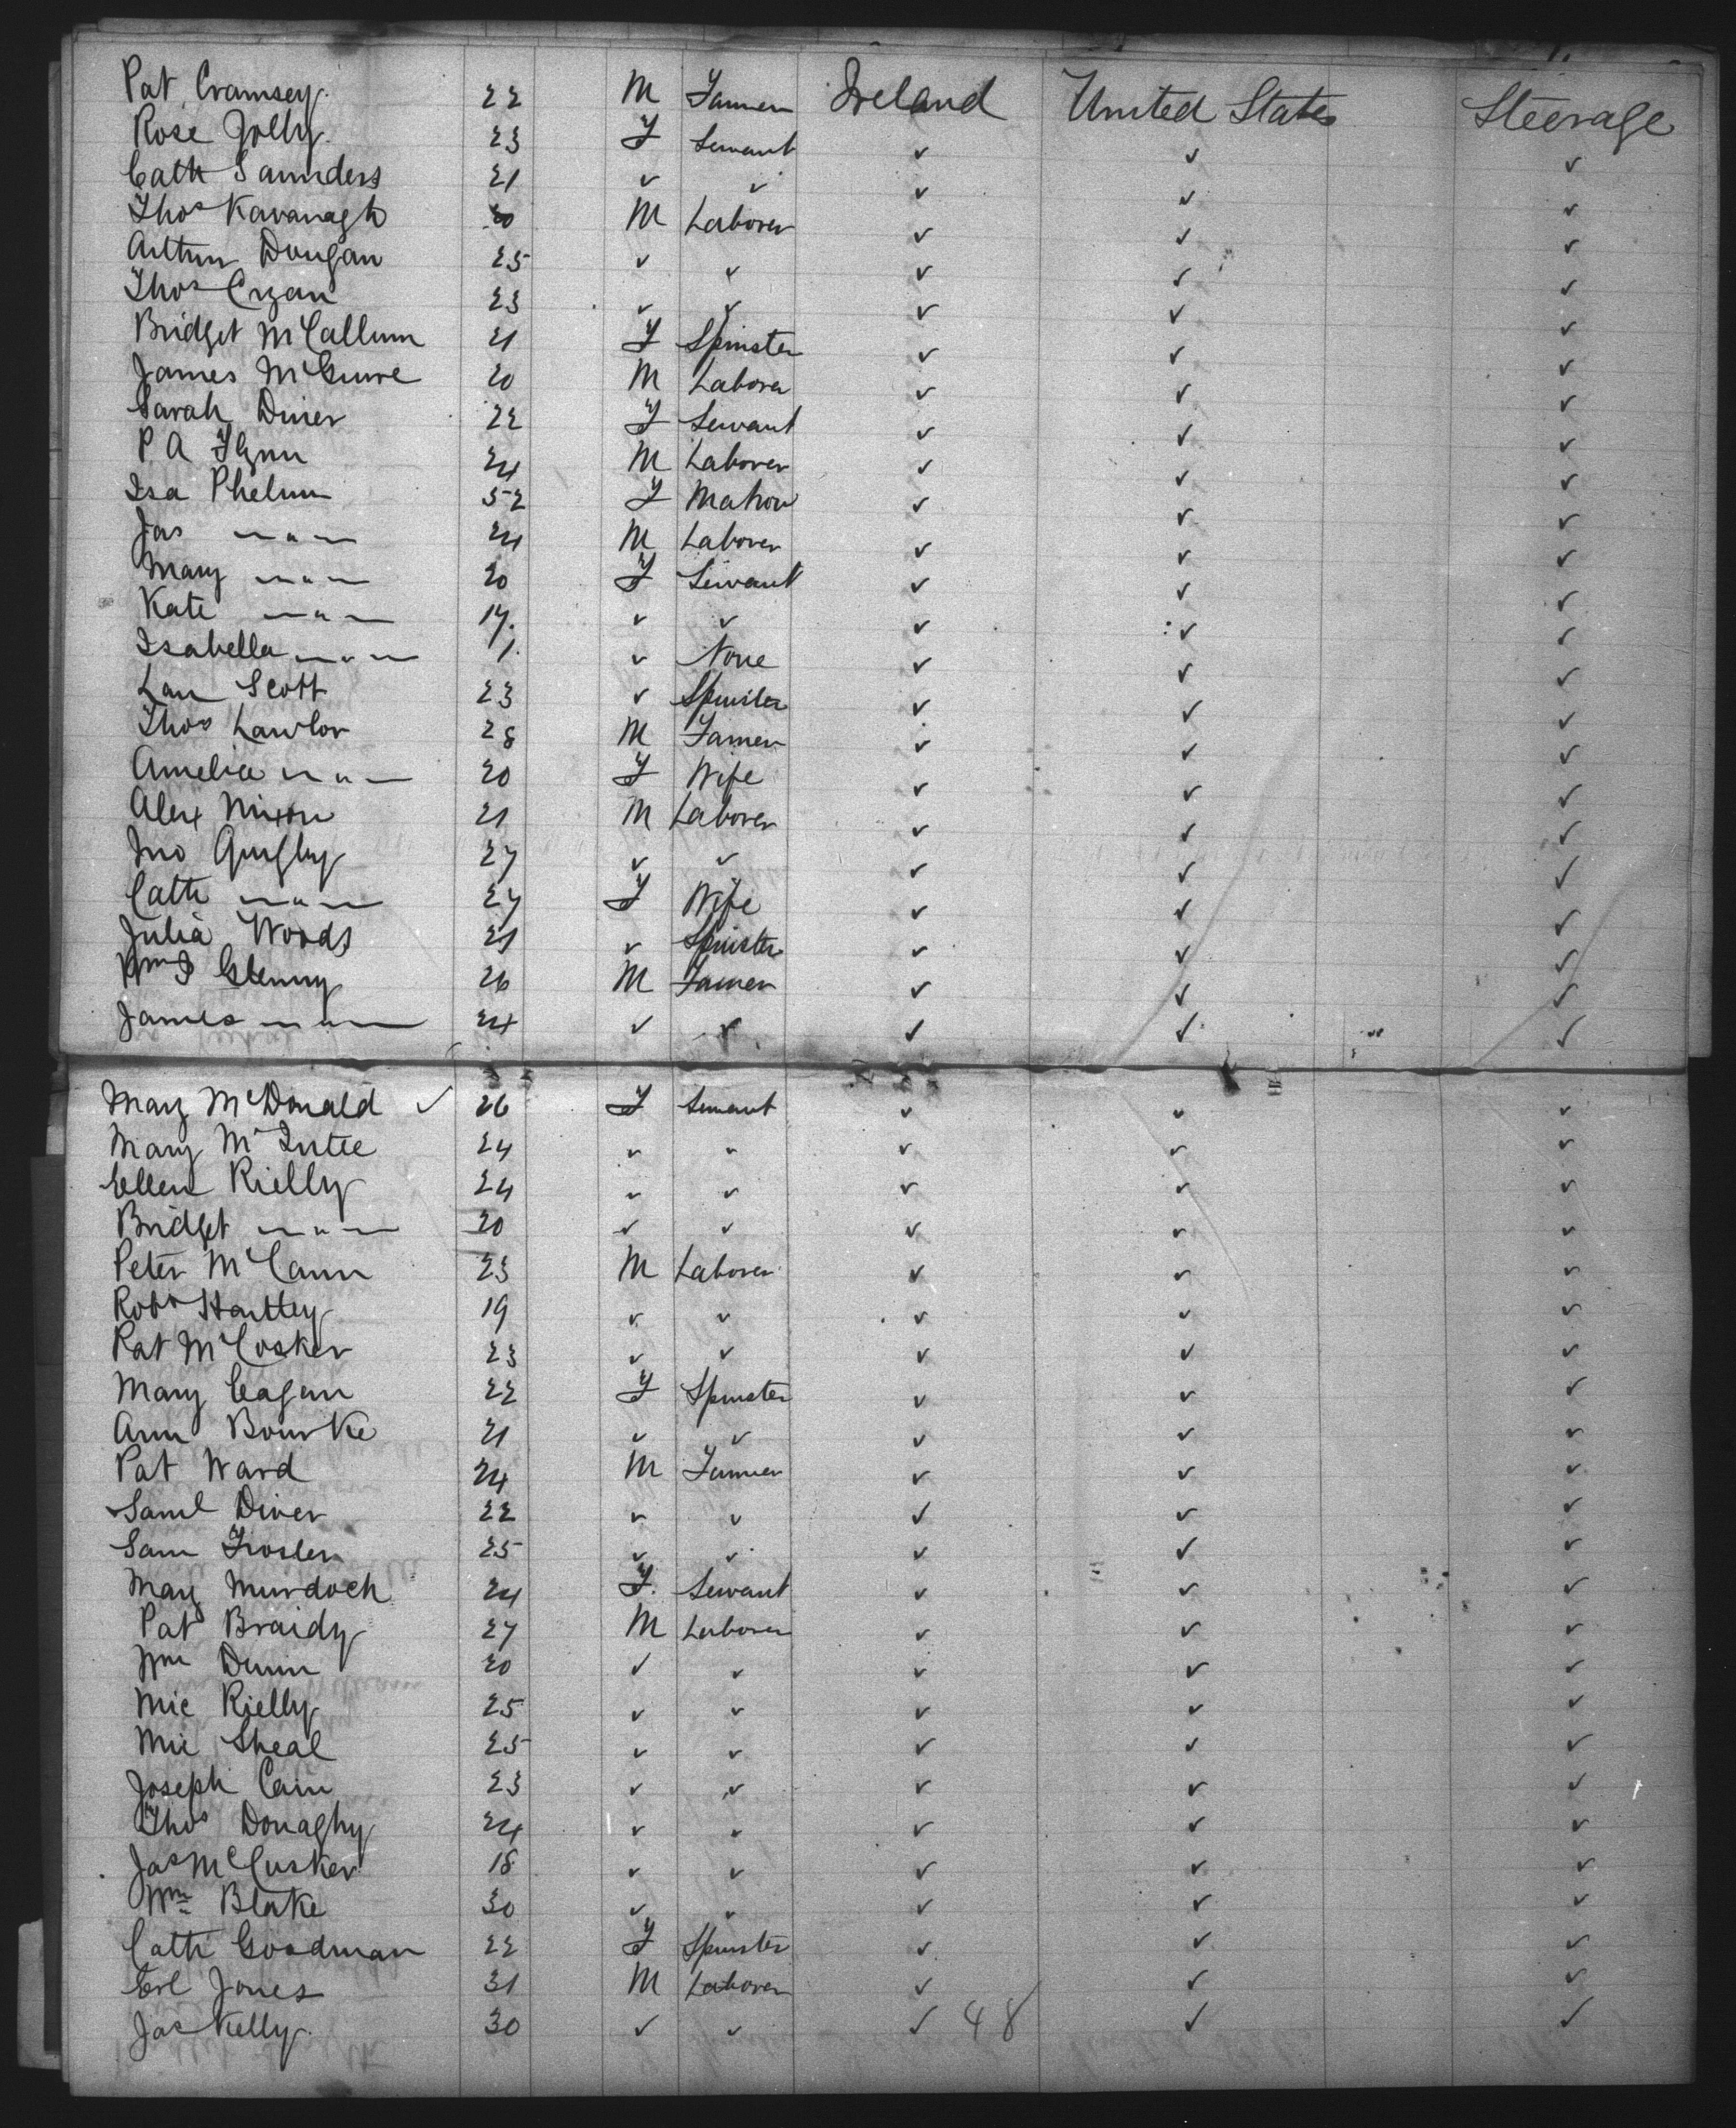 Pat Cramsey 22 M Farmer Ireland United States Steerage
Rose Jolly 23 F Servant ✓ ✓ ✓
Cath Saunders 21 ✓ ✓ ✓ ✓ ✓
Thos Kavanagh 20 M Laborer ✓ ✓ ✓
Arthur Dougan 25 ✓ ✓ ✓ ✓ ✓
Thos 23 ✓ ✓ ✓ ✓ ✓
Bridget McCallum 21 F Spinster ✓ ✓ ✓
James McGuire 20 M Laborer ✓ ✓ ✓
Sarah Diver 22 F Servant ✓ ✓ ✓
P A Flynn 24 M Laborer ✓ ✓ ✓
Isa Phelun 52 F Matron ✓ ✓ ✓
Jas — " — 24 M Laborer ✓ ✓ ✓
Mary — " — 20 F Servant ✓ ✓ ✓
Kate — " — 17 ✓ ✓ ✓ ✓ ✓
Isabella — " — 1 ✓ None ✓ ✓ ✓
Scott 23 ✓ Spinster ✓ ✓ ✓
Thos Lawlor 28 M Farmer ✓ ✓ ✓
Amelia — " — 20 F Wife ✓ ✓ ✓
Alex Nixon 21 M Laborer ✓ ✓ ✓
Jno Quigley 27 ✓ ✓ ✓ ✓ ✓
Cath — " — 27 F Wife ✓ ✓ ✓
Julia Woods 21 ✓ Spinster ✓ ✓ ✓
Wm J Glenny 26 M Farmer ✓ ✓ ✓
James — " — 24 ✓ ✓ ✓ ✓ ✓
Mary McDonald ✓ 26 F Servant ✓ ✓ ✓
Mary McIntee 24 ✓ ✓ ✓ ✓ ✓
Ellen Rielly 24 ✓ ✓ ✓ ✓ ✓
Bridget — " — 20 ✓ ✓ ✓ ✓ ✓
Peter McCann 23 M Laborer ✓ ✓ ✓
Robt Hartley 19 ✓ ✓ ✓ ✓ ✓
Pat McCosker 23 ✓ ✓ ✓ ✓ ✓
Mary Eagan 22 F Spinster ✓ ✓ ✓
Ann Bourke 21 ✓ ✓ ✓ ✓ ✓
Pat Ward 24 M Farmer ✓ ✓ ✓
Saml Diver 22 ✓ ✓ ✓ ✓ ✓
Sam 25 ✓ ✓ ✓ ✓ ✓
Mary Murdock 24 F Servant ✓ ✓ ✓
Pat Braidy 27 M Laborer ✓ ✓ ✓
Wm Dunn 20 ✓ ✓ ✓ ✓ ✓
Mic Rielly 25 ✓ ✓ ✓ ✓ ✓
Mic Sheal 25 ✓ ✓ ✓ ✓ ✓
Joseph Cain 23 ✓ ✓ ✓ ✓ ✓
Thos Donaghy 24 ✓ ✓ ✓ ✓ ✓
Jas McCusker 18 ✓ ✓ ✓ ✓ ✓
Wm Blake 30 ✓ ✓ ✓ ✓ ✓
Cath Goodman 22 F Spinster ✓ ✓ ✓
Jones 31 M Laborer ✓ ✓ ✓
Jas Kelly 30 ✓ ✓ ✓ 48 ✓ ✓